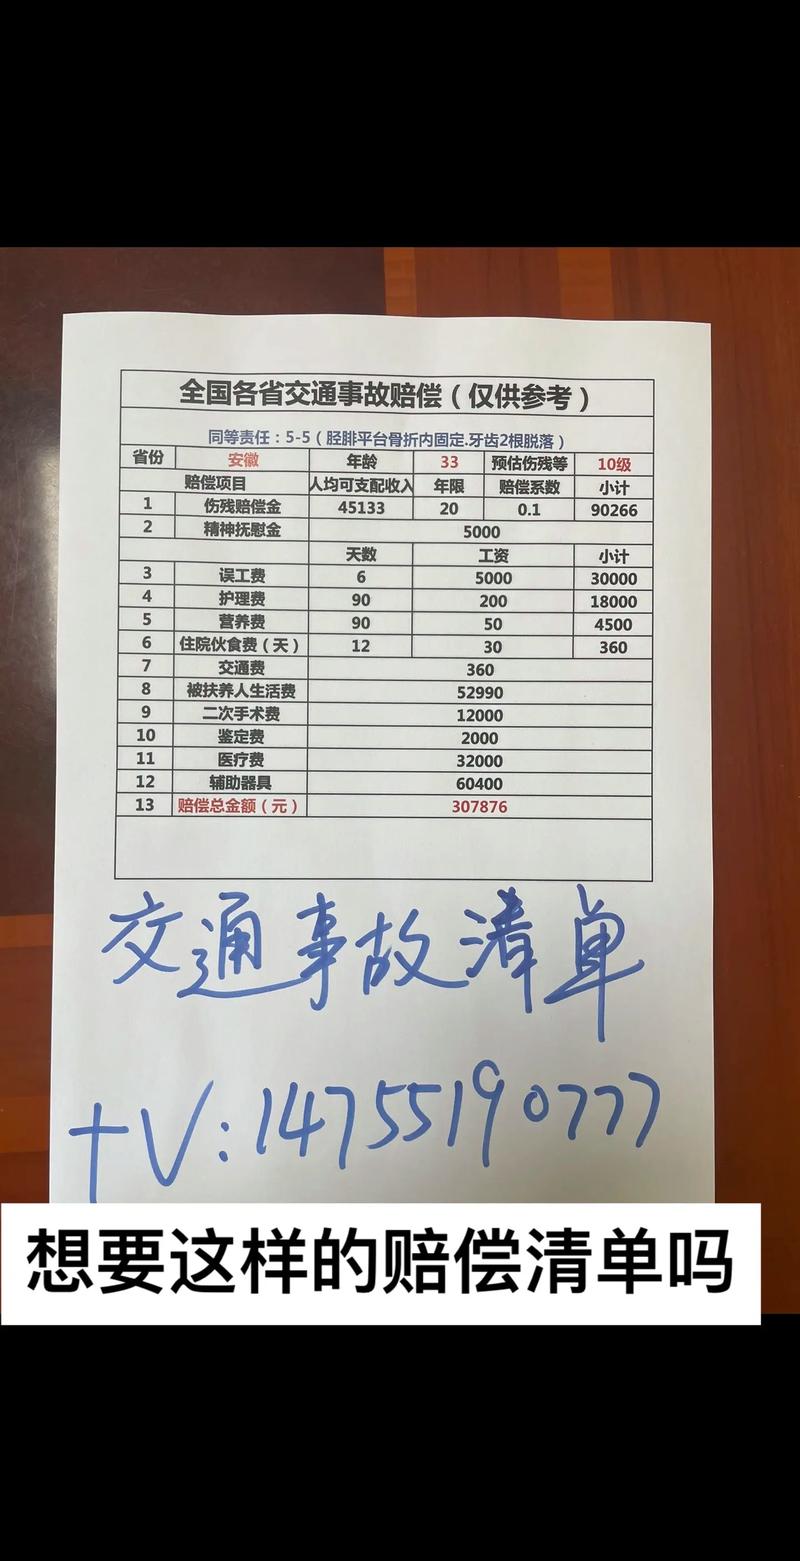 全国各省交通事故赔偿（仅供参考）
同等责任：5-5（胫腓平台骨折内固定.牙齿2根脱落）
省份 安徽 年龄 33 预估伤残等 10级
赔偿项目 人均可支配收入 年限 赔偿系数 小计
1 伤残赔偿金 45133 20 0.1 90266
2 精神抚慰金 5000
天数 工资 小计
3 误工费 6 5000 30000
4 护理费 90 200 18000
5 营养费 90 50 4500
6 住院伙食费（天） 12 30 360
7 交通费 360
8 被扶养人生活费 52990
9 二次手术费 12000
10 鉴定费 2000
11 医疗费 32000
12 辅助器具 60400
13 赔偿总金额（元） 307876
交通事故清单
+V:14755190777
想要这样的赔偿清单吗